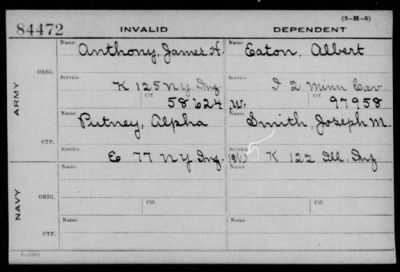 (3-H-5)
84472 INVALID DEPENDENT
ARMY
ORIG.
Name Anthony, James H. Name Eaton, Albert
Service K 125 NY Inf Service I 2 Minn Cav
Ctf. 58624 W. Ctf. 97958
CTF.
Name Putney, Alpha Name Smith, Joseph M.
Service E 77 NY Inf. Service K 122 Ill Inf
NAVY
ORIG.
Name Name
Service Service
Ctf. Ctf.
CTF.
Name Name
Service Service